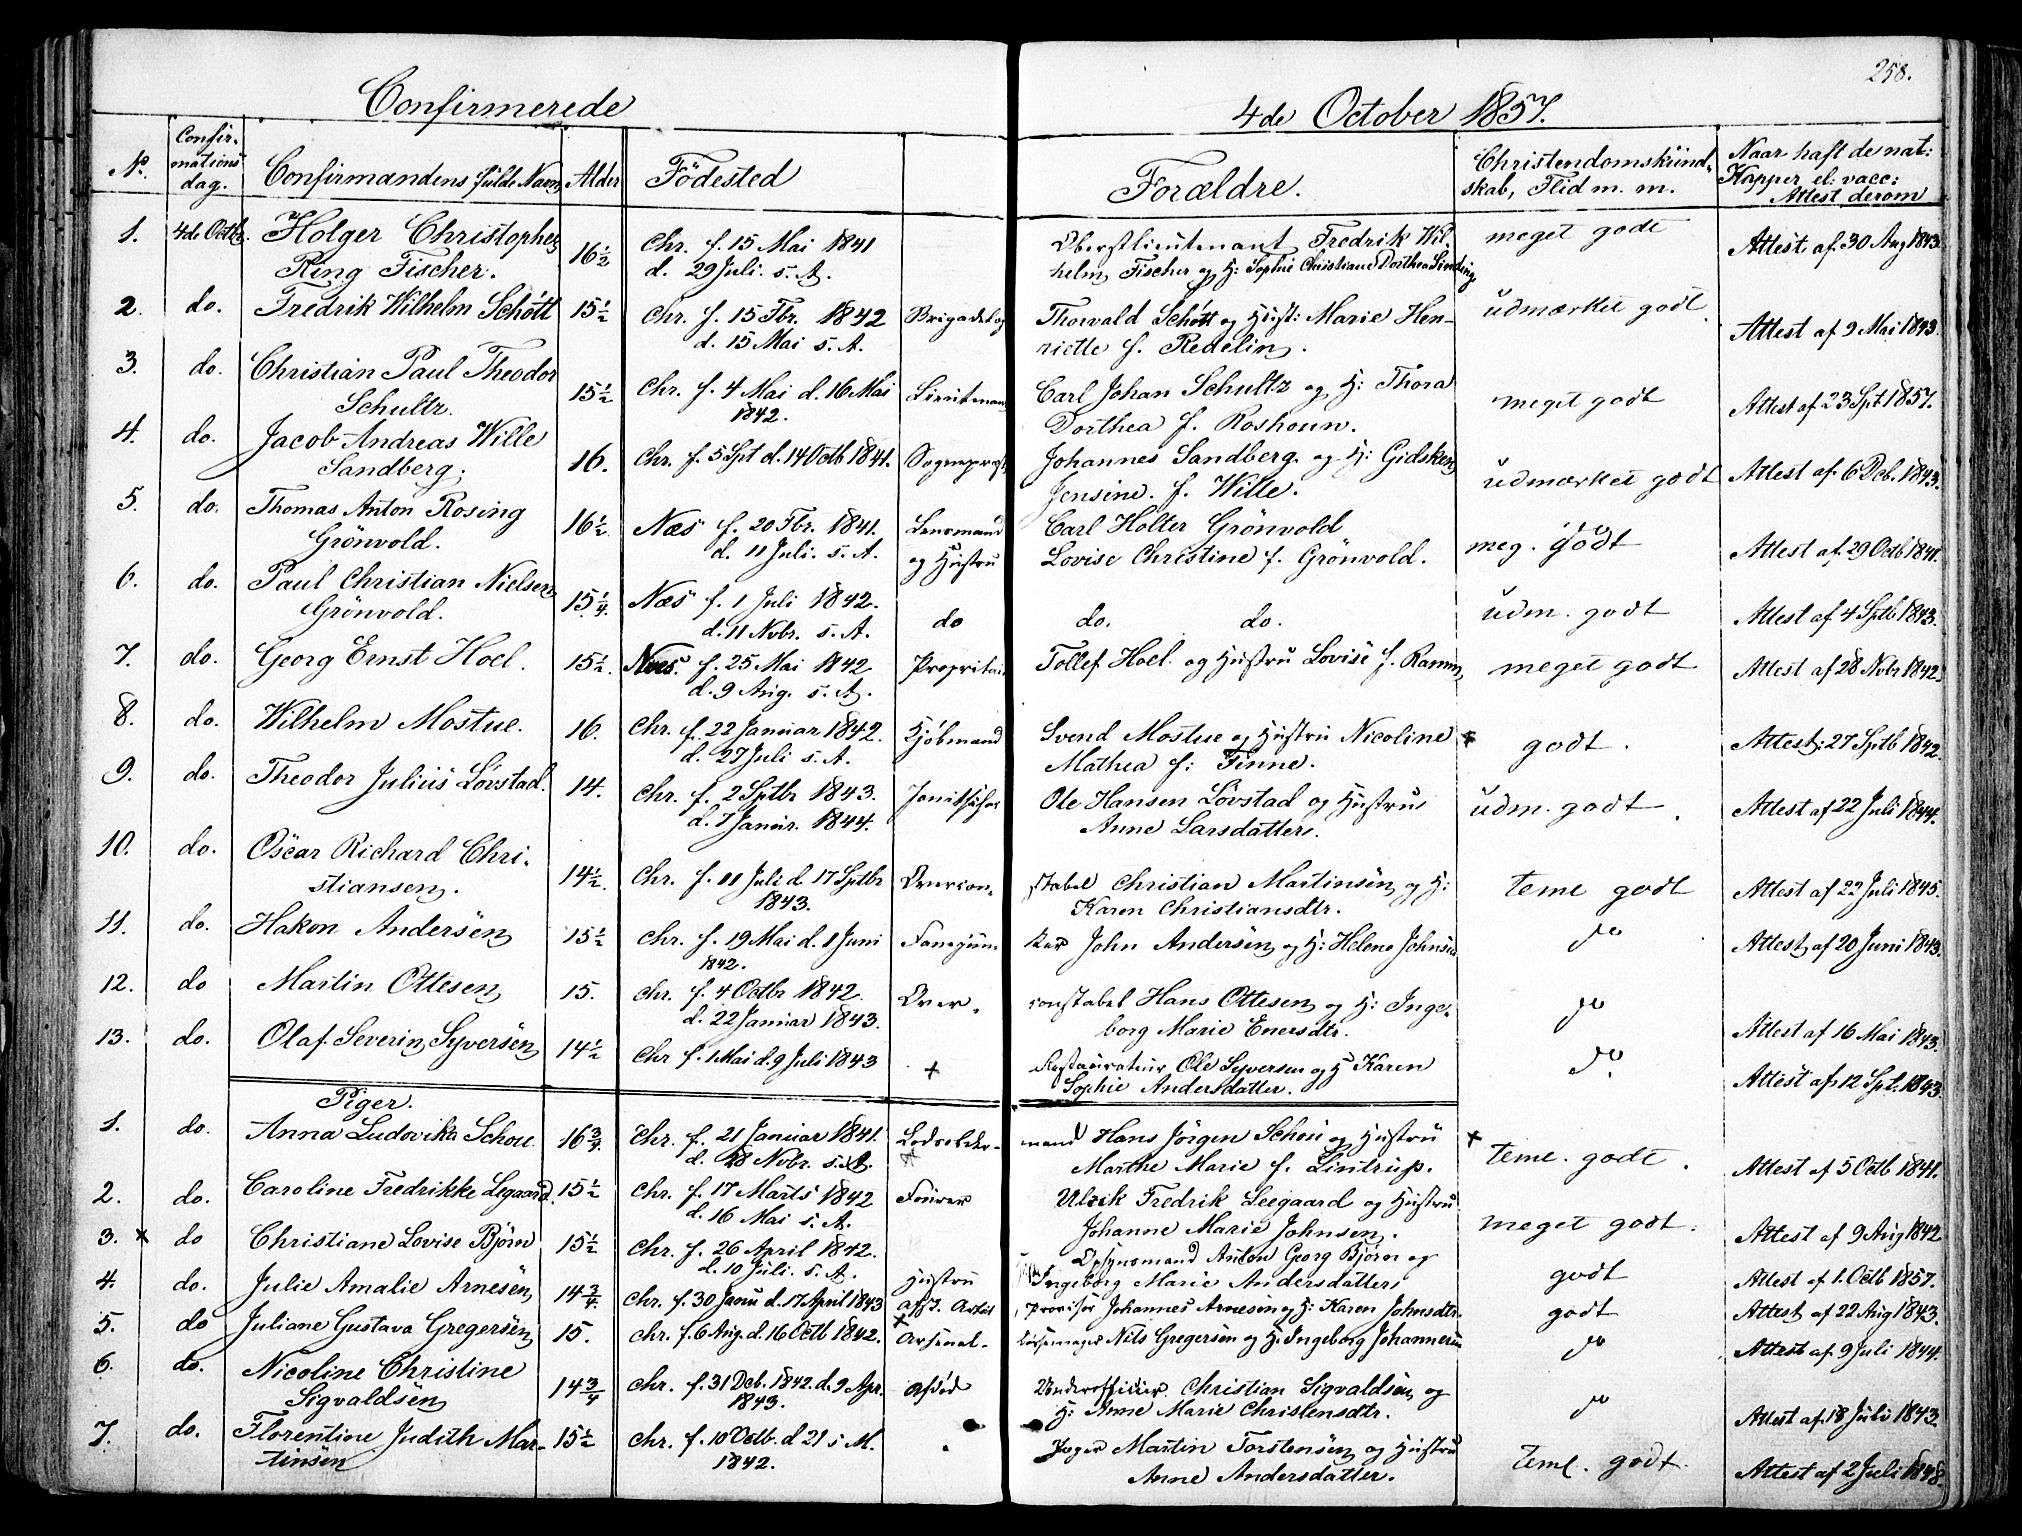 258.
Confirmerede 4de October 1857.
No. Confirmations dag. Confirmandens fulde Navn Alder Födested Forældre. Christendomskundskab, Flid m. m. Naar haft de nat: Kopper el: vacc: Attest derom
1. 4de Octbr. Holger Christopher 16½ Chr. f. 15 Mai 1841 Oberstlieutenant Fredrik Wil- meget godt Attest af 30 Aug 1843
Ring Fischer. d. 29 Juli s. A. helm Fischer og H: Sophie Christiane Dorthea Sinding
2. do. Fredrik Wilhelm Schött 15½ Chr. f. 15 Fbr. 1842 Brigadelæge Thorvald Schött og Hust: Marie Hen- udmærket godt Attest af 9 Mai 1843
d. 15 Mai s. A. riette f. Redelin.
3. do. Christian Paul Theodor 15½ Chr. f. 4 Mai d. 16 Mai Lieutenant Carl Johan Schultz og H: Thora meget godt Attest af 23 Spt 1857.
Schultz. 1842. Dorthea f. Roshoun.
4. do. Jacob Andreas Wille 16. Chr. f. 5 Spt d. 14 Octb 1841. Sogneprest Johannes Sandberg og H: Gidsken udmærket godt Attest af 6 Dcb. 1843.
Sandberg. Jensine f. Wille.
5. do. Thomas Anton Rosing 16½ Næs f. 20 Fbr. 1841. Lensmand Carl Holter Grönvold meg. godt Attest af 29 Octb 1841.
Grönvold. d. 11 Juli. s. A. og Hustru Lovise Christine f. Grönvold.
6. do. Paul Christian Nielsen 15¼ Næs f. 1 Juli 1842. do do. do. udm. godt Attest af 4 Sptb 1843.
Grönvold. d. 11 Nvbr. s. A.
7. do. Georg Ernst Hoel. 15½. Næs. f. 25 Mai 1842 Propritair Tollef Hoel og Hustru Lovise f. Ramm meget godt Attest af 28 Nvbr 1842.
d. 9 Aug. s. A.
8. do. Wilhelm Mostue. 16. Chr. f. 22 Januar 1842. Kjöbmand Svend Mostue og Hustru Nicoline godt. Attest: 27 Sptb 1842.
d. 27 Juli s. A. Mathea f: Finne.
9. do. Theodor Julius Lövstad. 14. Chr. f. 2 Sptbr 1843. Ole Hansen Lövstad og Hustru udm. godt. Attest af 22 Juli 1844.
d. 7 Januar. 1844. Anne Larsdatter.
10. do. Oscar Richard Chri- 14½. Chr. f. 11 Juli d. 17 Sptbr Overcon- stabel Christian Martinsen og H: teme godt Attest af 22 Juli 1845.
stiansen. 1843. Karen Christiansdtr.
11. do. Hakon Andersen 15½ Chr. f. 19 Mai d. 1 Juni John Andersen og H: Helene Johnsen do Attest af 20 Juni 1843.
1842.
12. do Martin Ottesen 15. Chr. f. 4 Octbr 1842. Over- constabel Hans Ottesen og H: Inge- do
d. 22 Januar 1843. borg Marie Enersdtr. Attest af 16 Mai 1843.
13. do. Olaf Severin Syversen 14½ Chr f. 1 Mai d. 9 Juli 1843 + Restaurateur Ole Syversen og H Karen do.
Sophie Andersdatter. Attest af 12 Spt. 1843
Piger.
1. do. Anna Ludovika Schou 16¾. Chr. f. 21 Januar 1841. mand Hans Jörgen Schou og Hustru + teme. godt. Attest af 5 Octb 1841.
d. 28 Nvbr. s. A. Marthe Marie f. Lintrup.
2. do. Caroline Fredrikke Legaard. 15½ Chr. f. 17 Marts 1842 Fourer Ulrik Fredrik Leegaard og Hustru meget godt. Attest af 9 Aug 1842
d. 16 Mai s. A. Johanne Marie Johnsen.
3. × do Christiane Lovise Björn 15½ Chr. f. 26 April 1842. Opsynsmand Anton Georg Björn og godt Attest af 1. Octb 1857.
d. 10 Juli. s. A. Hustru Ingeborg Marie Andersdatter
4. do. Julie Amalie Arnesen 14¾. Chr. f. 30 Janu d. 17 April 1843 Johannes Arnesen og H: Karen Johnsdtr. godt Attest af 22 Aug 1843.
5. do Juliane Gustava Gregersen 15. Chr. f. 6 Aug. d. 16 Octb 1842. Arsenal- Nils Gregersen og H: Ingeborg Johannesen do Attest af 9 Juli 1844.
6. do. Nicoline Christine 14¾ Chr. f. 31 Dcb. 1842. d. 9 Apr. Underofficier Christian Sigvaldsen og do
Sigvaldsen 1843. H: Anne Marie Christensdtr. Attest af 18 Juli 1843.
7. do. Florentine Judith Mar- 15½ Chr. f. 10 Octb. d 21 s M. Jæger Martin Torstensen og Hustru teml. godt.
tinsen 1842. Anne Andersdatter. Attest af 2 Juli 1848.